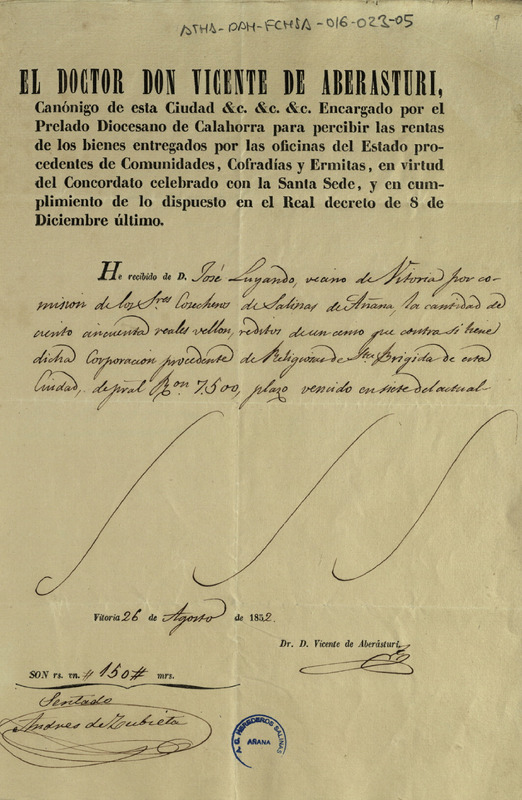 ATHA-DAH-FCHSA-016-023-05
9
EL DOCTOR DON VICENTE DE ABERASTURI,
Canónigo de esta Ciudad &c. &c. &c. Encargado por el
Prelado Diocesano de Calahorra para percibir las rentas
de los bienes entregados por las oficinas del Estado pro-
cedentes de Comunidades, Cofradías y Ermitas, en virtud
del Concordato celebrado con la Santa Sede, y en cum-
plimiento de lo dispuesto en el Real decreto de 8 de
Diciembre último.
He recibido de D. José Luyando, vecino de Vitoria por co-
mision de los Sres Cosecheros de Salinas de Añana, la cantidad de
ciento cincuenta reales vellon, reditos de un censo que contra si tiene
dicha Corporacion procedente de Religiosas de Sta Brigida de esta
Ciudad, de pral Ron 7.500, plazo vencido en siete del actual
Vitoria 26 de Agosto de 1852.
Dr. D. Vicente de Aberásturi.
SON rs. vn. # 150 # mrs.
Sentado
Andres de Zubieta
A. G. HEREDEROS SALINAS
AÑANA